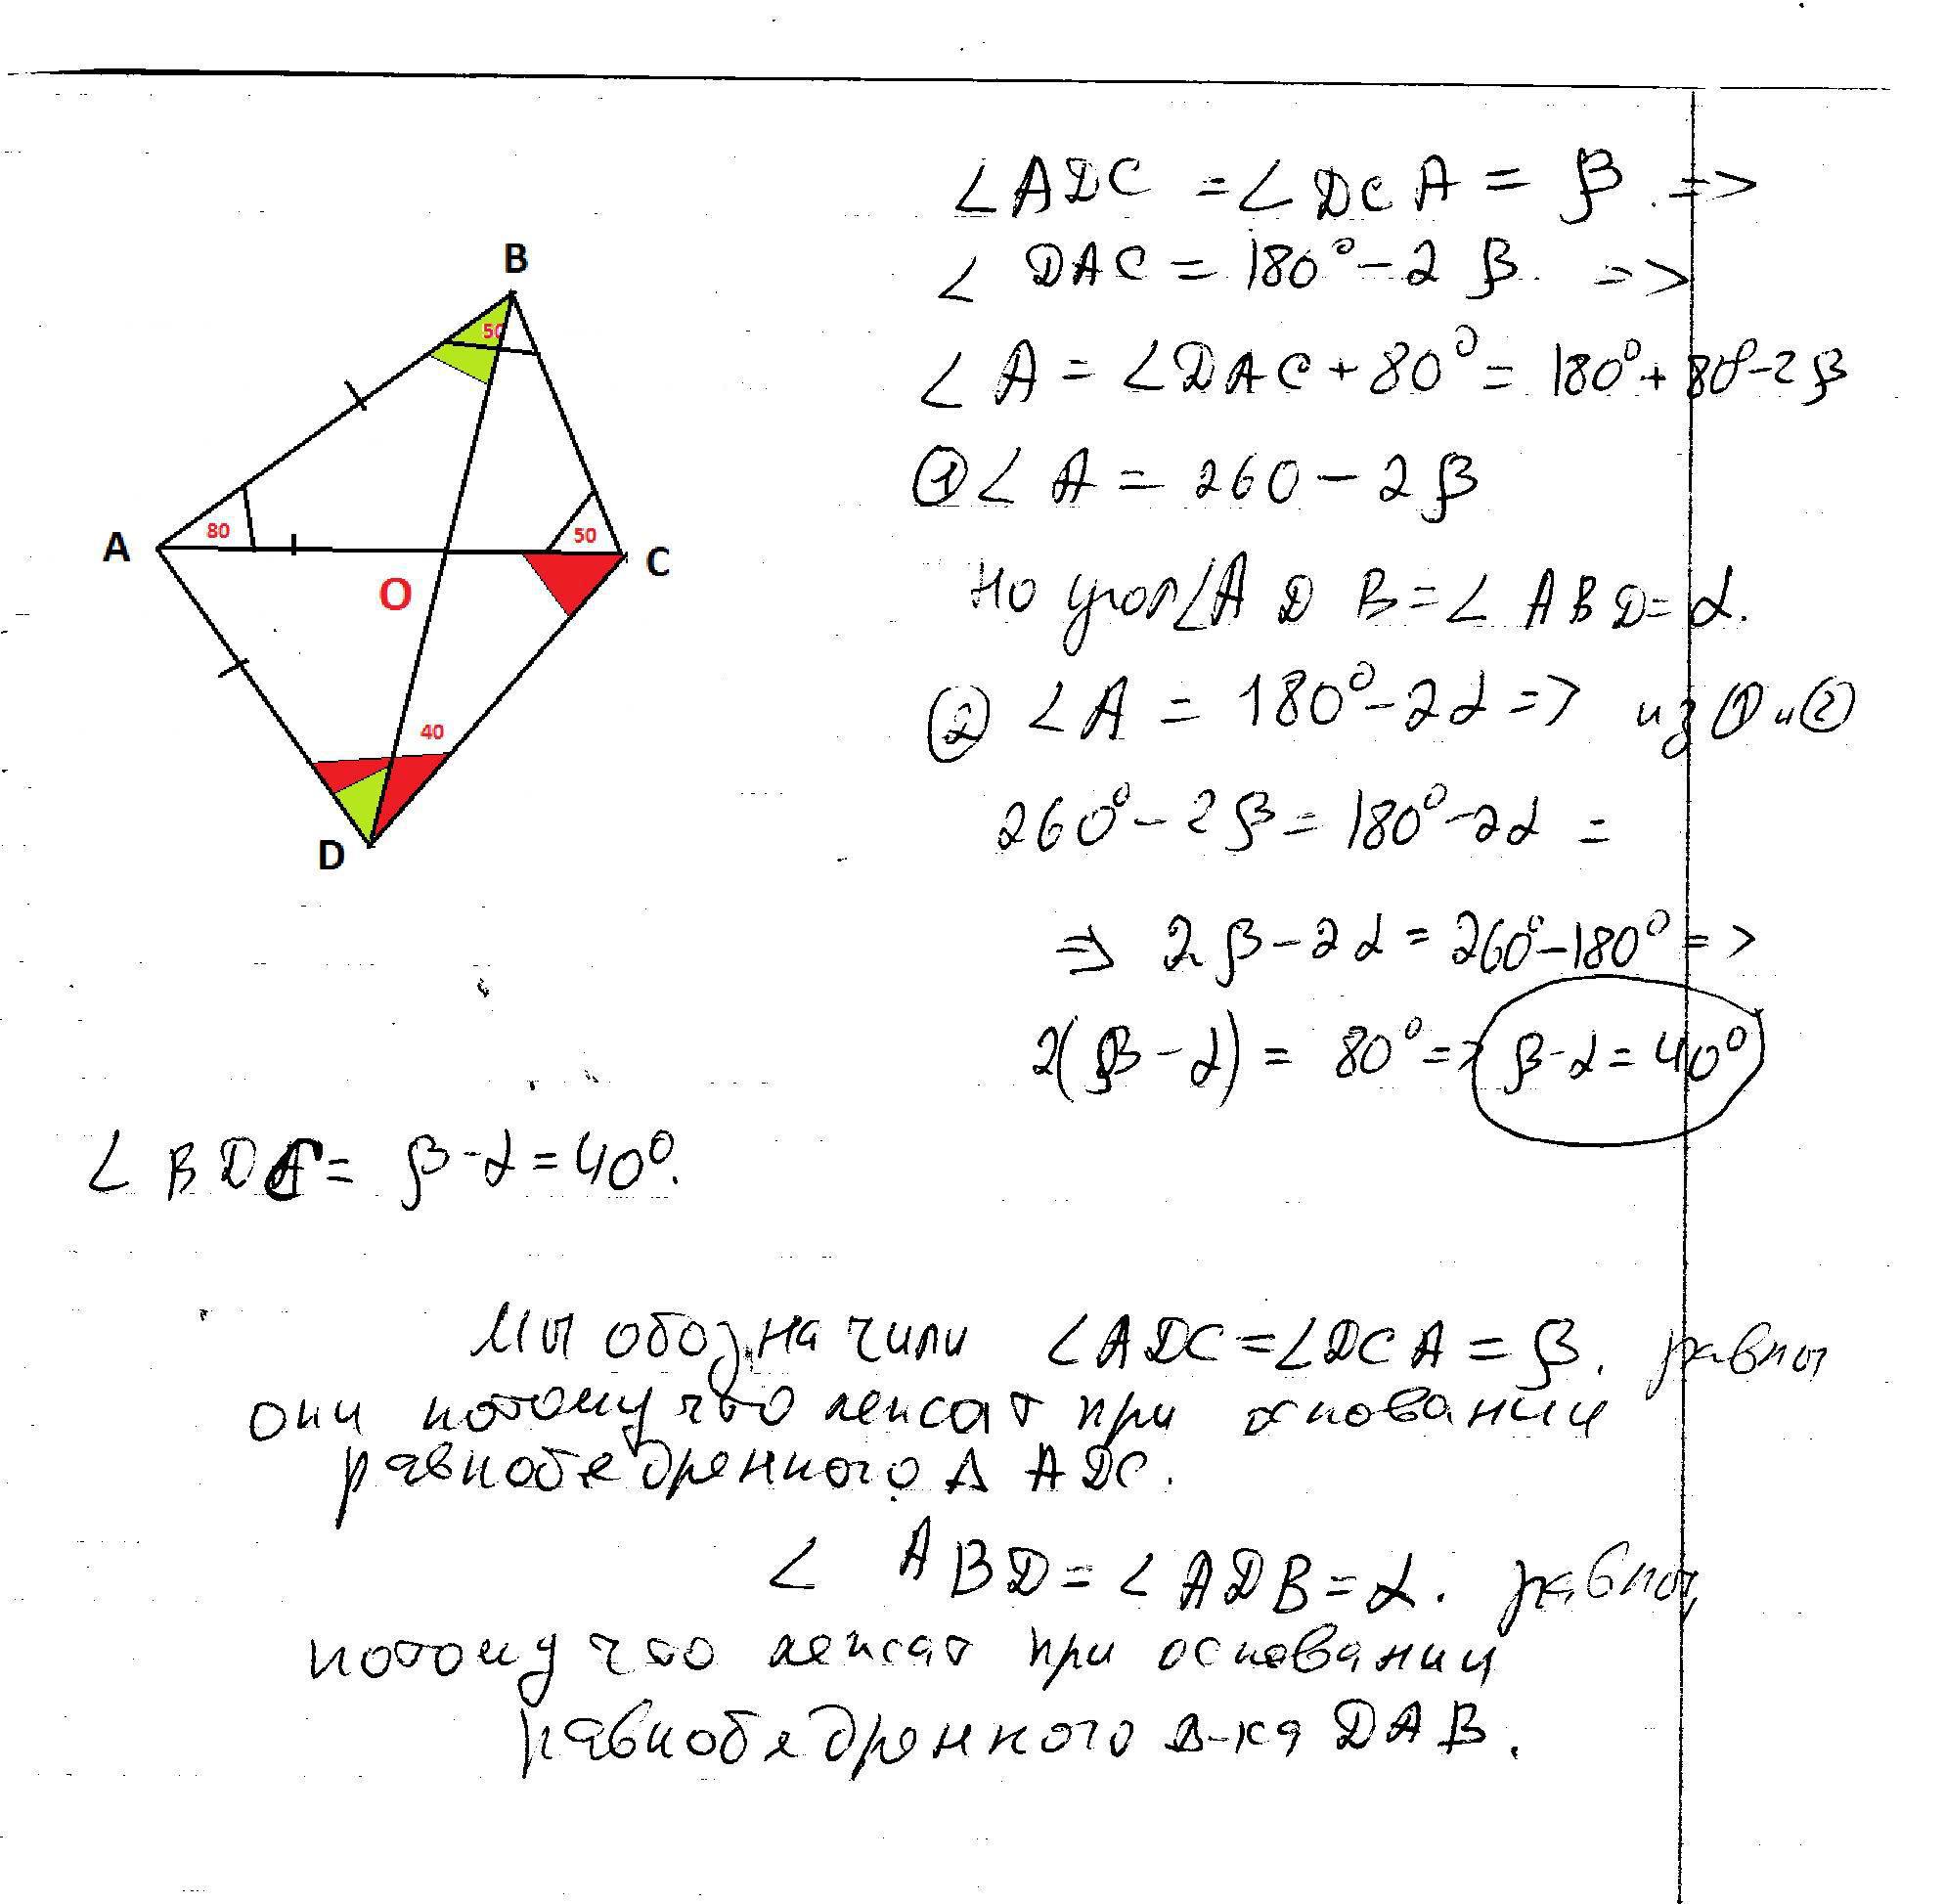 ∠ADC = ∠DCA = β =>
∠ DAC = 180° - 2 β. =>
∠ A = ∠DAC + 80° = 180° + 80° - 2β
① ∠ A = 260 - 2β
Но угол ∠A D B = ∠ A B D = α.
② ∠ A = 180° - 2α => из ① и ②
260° - 2β = 180° - 2α =
=> 2β - 2α = 260° - 180° =>
2(β - α) = 80° => β - α = 40°
B
50
80
50
A
C
O
40
D
∠ B D C = β - α = 40°.
Мы обозначили ∠ADC = ∠DCA = β. равны
они потому что лежат при основании
равнобедренного Δ ADC.
∠ ABD = ∠ADB = α. равны,
потому что лежат при основании
равнобедренного Δ-ка DAB.